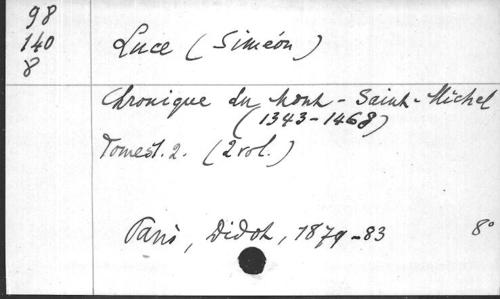 98
140
8
Luce (Siméon)
Chronique du Mont-Saint-Michel
(1343-1468)
Tomes 1.2. (2 vol.)
Paris, Didot, 1879-83 8°